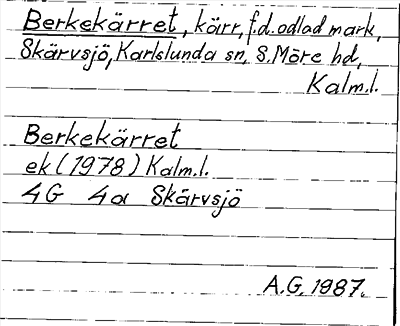 Berkekärret, kärr, f.d. odlad mark,
Skärvsjö, Karlslunda sn, S. Möre hd,
Kalm.l.
Berkekärret
ek (1978) Kalm.l.
4G 4a Skärvsjö
A.G. 1987.